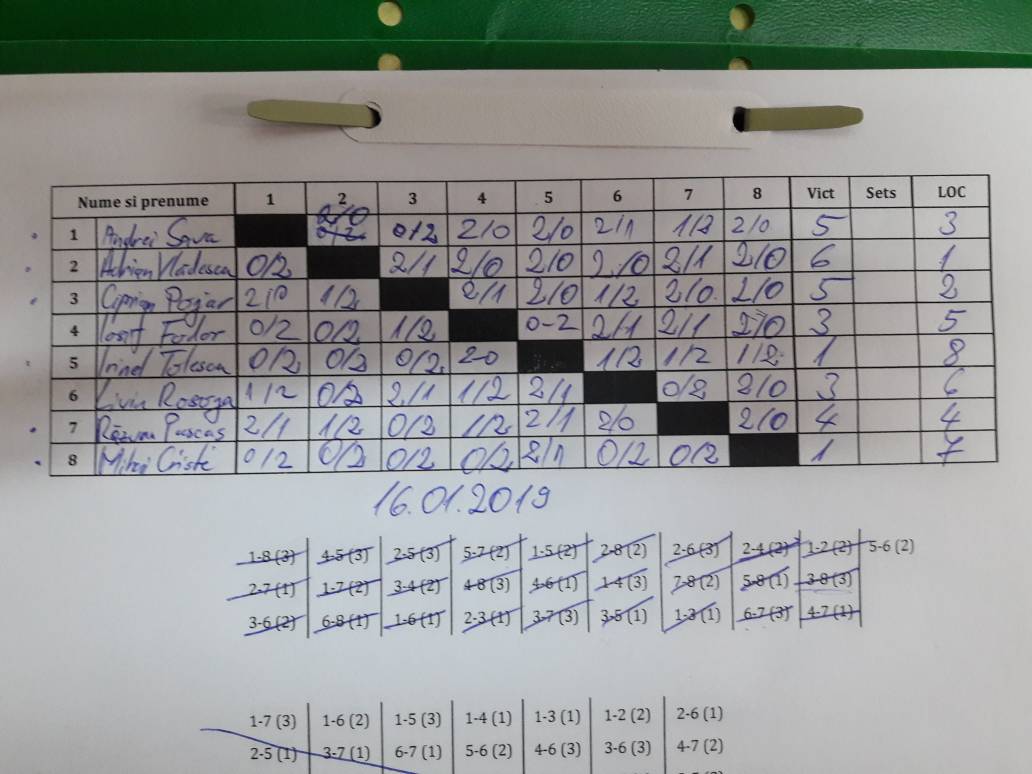 Nume si prenume 1 2 3 4 5 6 7 8 Vict Sets LOC
1 Andrei Sava 2/0 0/2 0/2 2/0 2/0 2/1 1/2 2/0 5 3
2 Adrian Vladescu 0/2 2/1 2/0 2/0 2/0 2/1 2/0 6 1
3 Ciprian Pojar 2/0 1/2 2/1 2/0 1/2 2/0 2/0 5 2
4 Iosif Fodor 0/2 0/2 1/2 0-2 2/1 2/1 2/0 3 5
5 Irinel 0/2 0/2 0/2 2-0 1/2 1/2 1/2 1 8
6 Liviu Rosoga 1/2 0/2 2/1 1/2 2/1 0/2 2/0 3 6
7 Răzvan Pascas 2/1 1/2 0/2 1/2 2/1 2/0 2/0 4 4
8 Mihai Criste 0/2 0/2 0/2 0/2 2/1 0/2 0/2 1 7
16.01.2019
1-8 (3) 4-5 (3) 2-5 (3) 5-7 (2) 1-5 (2) 2-8 (2) 2-6 (3) 2-4 (2) 1-2 (2) 5-6 (2)
2-7 (1) 1-7 (2) 3-4 (2) 4-8 (3) 4-6 (1) 1-4 (3) 7-8 (2) 5-8 (1) 3-8 (3)
3-6 (2) 6-8 (1) 1-6 (1) 2-3 (1) 3-7 (3) 3-5 (1) 1-3 (1) 6-7 (3) 4-7 (1)
1-7 (3) 1-6 (2) 1-5 (3) 1-4 (1) 1-3 (1) 1-2 (2) 2-6 (1)
2-5 (1) 3-7 (1) 6-7 (1) 5-6 (2) 4-6 (3) 3-6 (3) 4-7 (2)